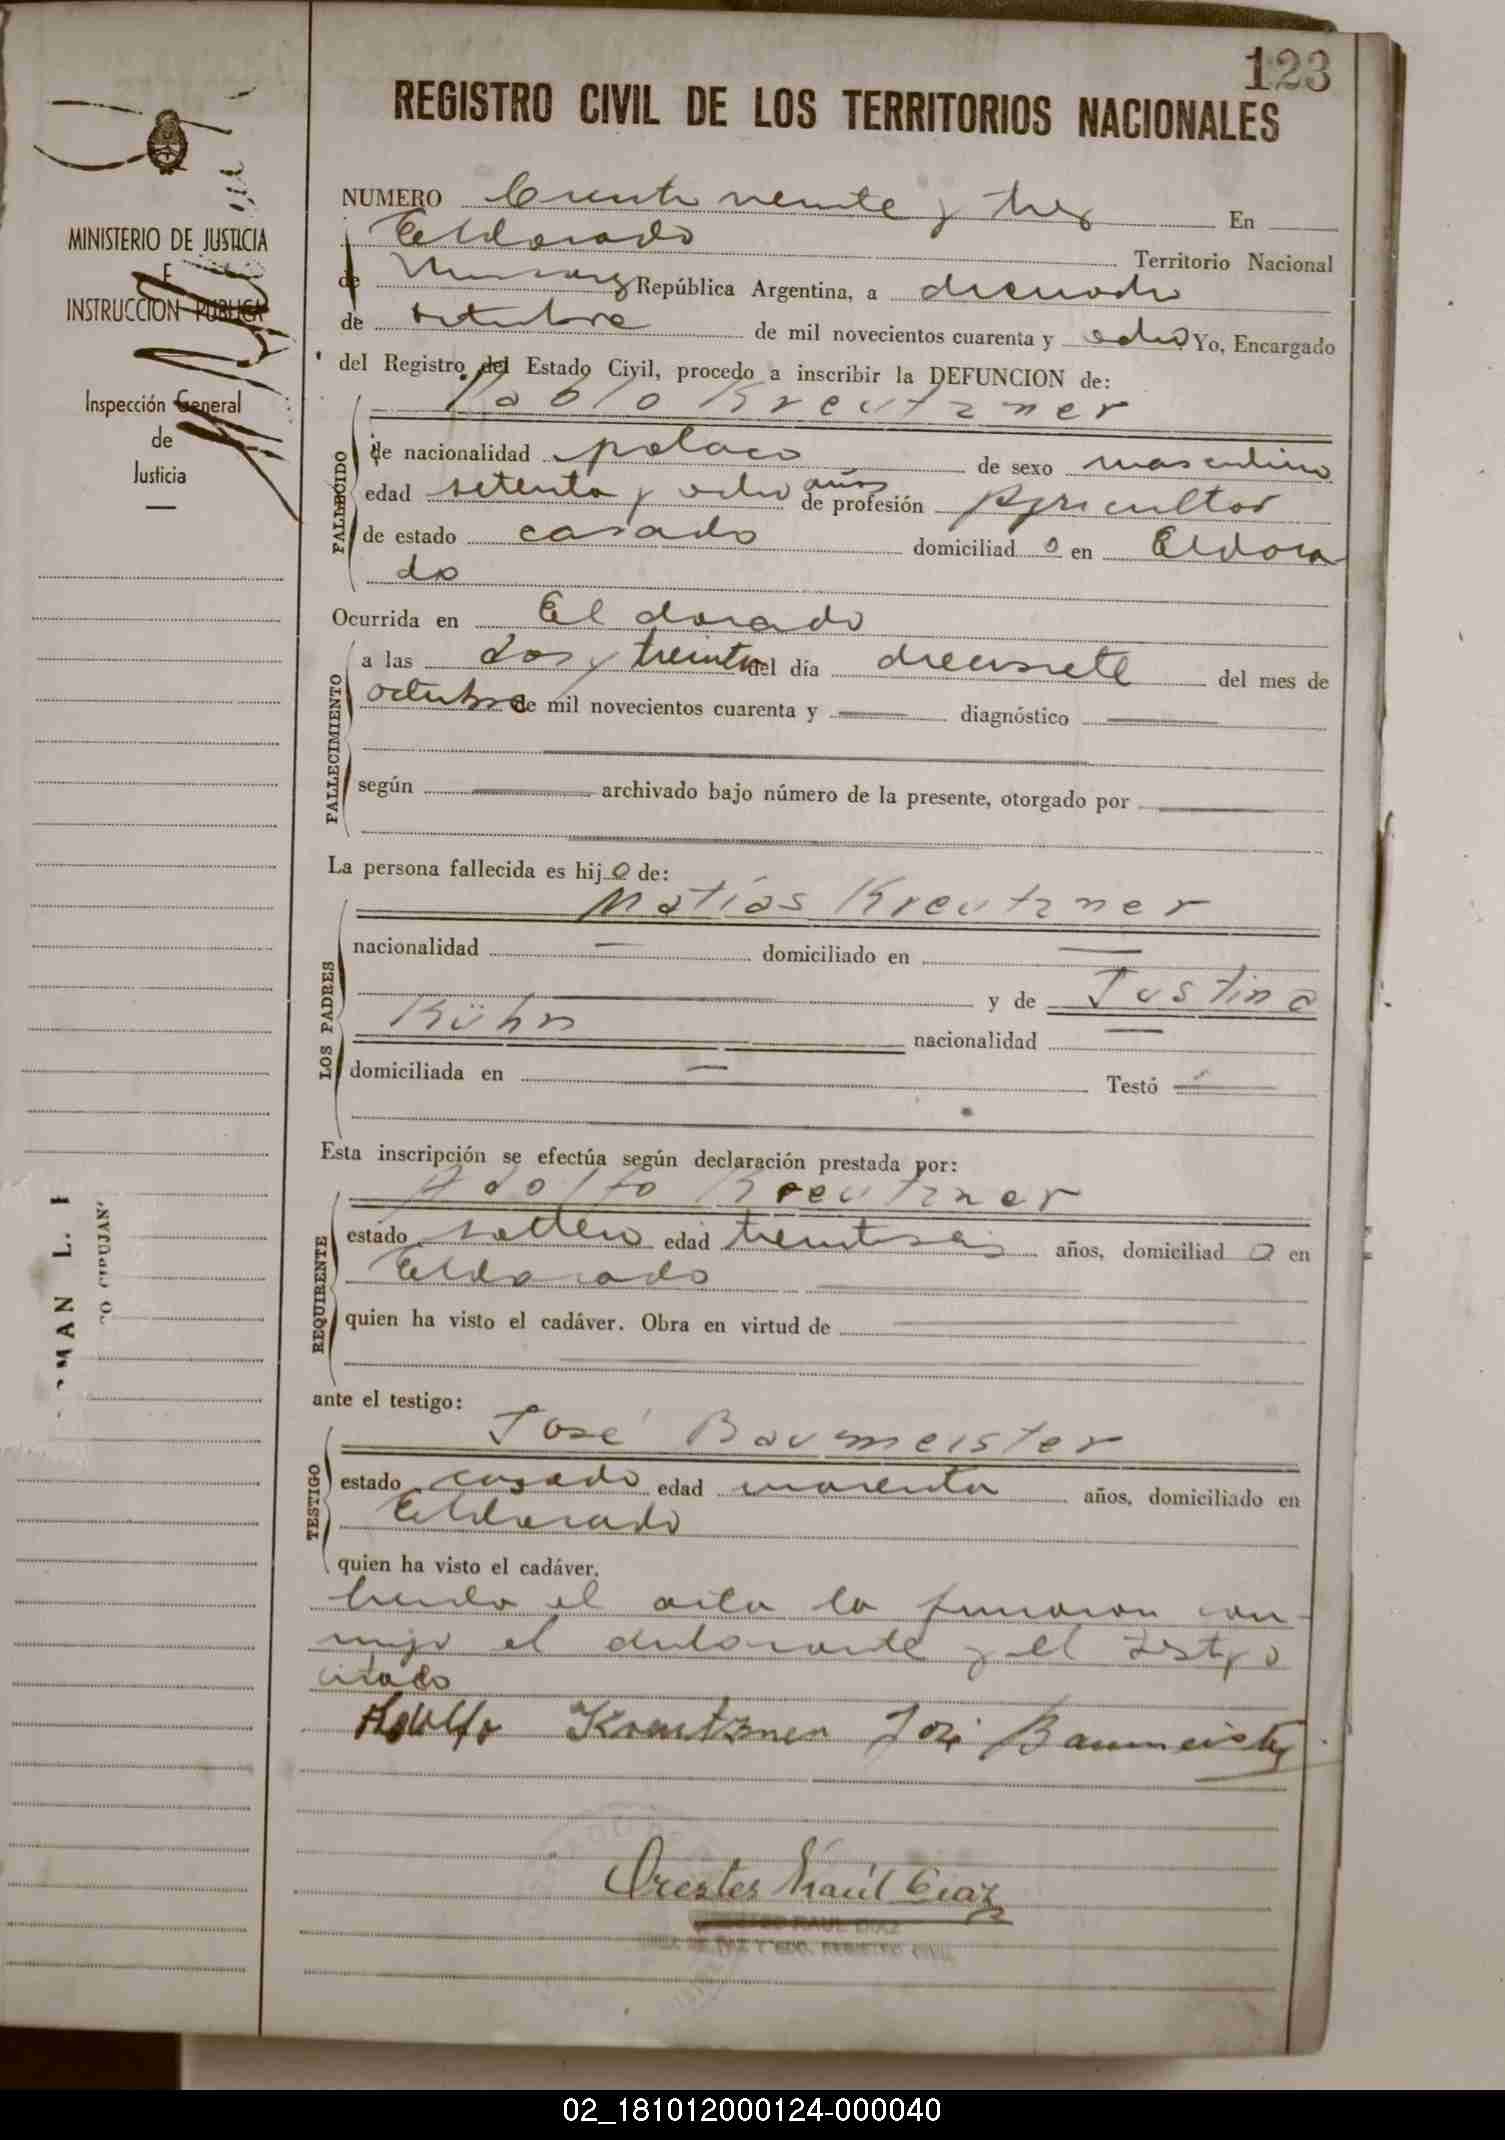 123
REGISTRO CIVIL DE LOS TERRITORIOS NACIONALES
MINISTERIO DE JUSTICIA
E
INSTRUCCION PUBLICA
Inspección General
de
Justicia
NUMERO Ciento veinte y tres En
Eldorado Territorio Nacional
de Misiones República Argentina, a dieciocho
de octubre de mil novecientos cuarenta y ocho Yo, Encargado
del Registro del Estado Civil, procedo a inscribir la DEFUNCION de:
Pablo Kreutzner
FALLECIDO
de nacionalidad polaco de sexo masculino
edad setenta y ocho años de profesión Agricultor
de estado casado domiciliad o en Eldora
do
Ocurrida en El dorado
FALLECIMIENTO
a las dos y treinta del día diecisiete del mes de
octubre de mil novecientos cuarenta y diagnóstico
según archivado bajo número de la presente, otorgado por
La persona fallecida es hij o de:
LOS PADRES
Matías Kreutzner
nacionalidad domiciliado en
y de Justina
Kühn nacionalidad
domiciliada en Testó
Esta inscripción se efectúa según declaración prestada por:
REQUIRENTE
Adolfo Kreutzner
estado soltero edad treintiseis años, domiciliad o en
Eldorado
quien ha visto el cadáver. Obra en virtud de
ante el testigo:
TESTIGO
José Baumeister
estado casado edad cuarenta años, domiciliado en
Eldorado
quien ha visto el cadáver.
Leida el acta la firmaron con
migo el declarante y el testigo
citado
Adolfo Kreutzner José Baumeister
Orestes Raúl Diaz
RAUL DIAZ
02_181012000124-000040